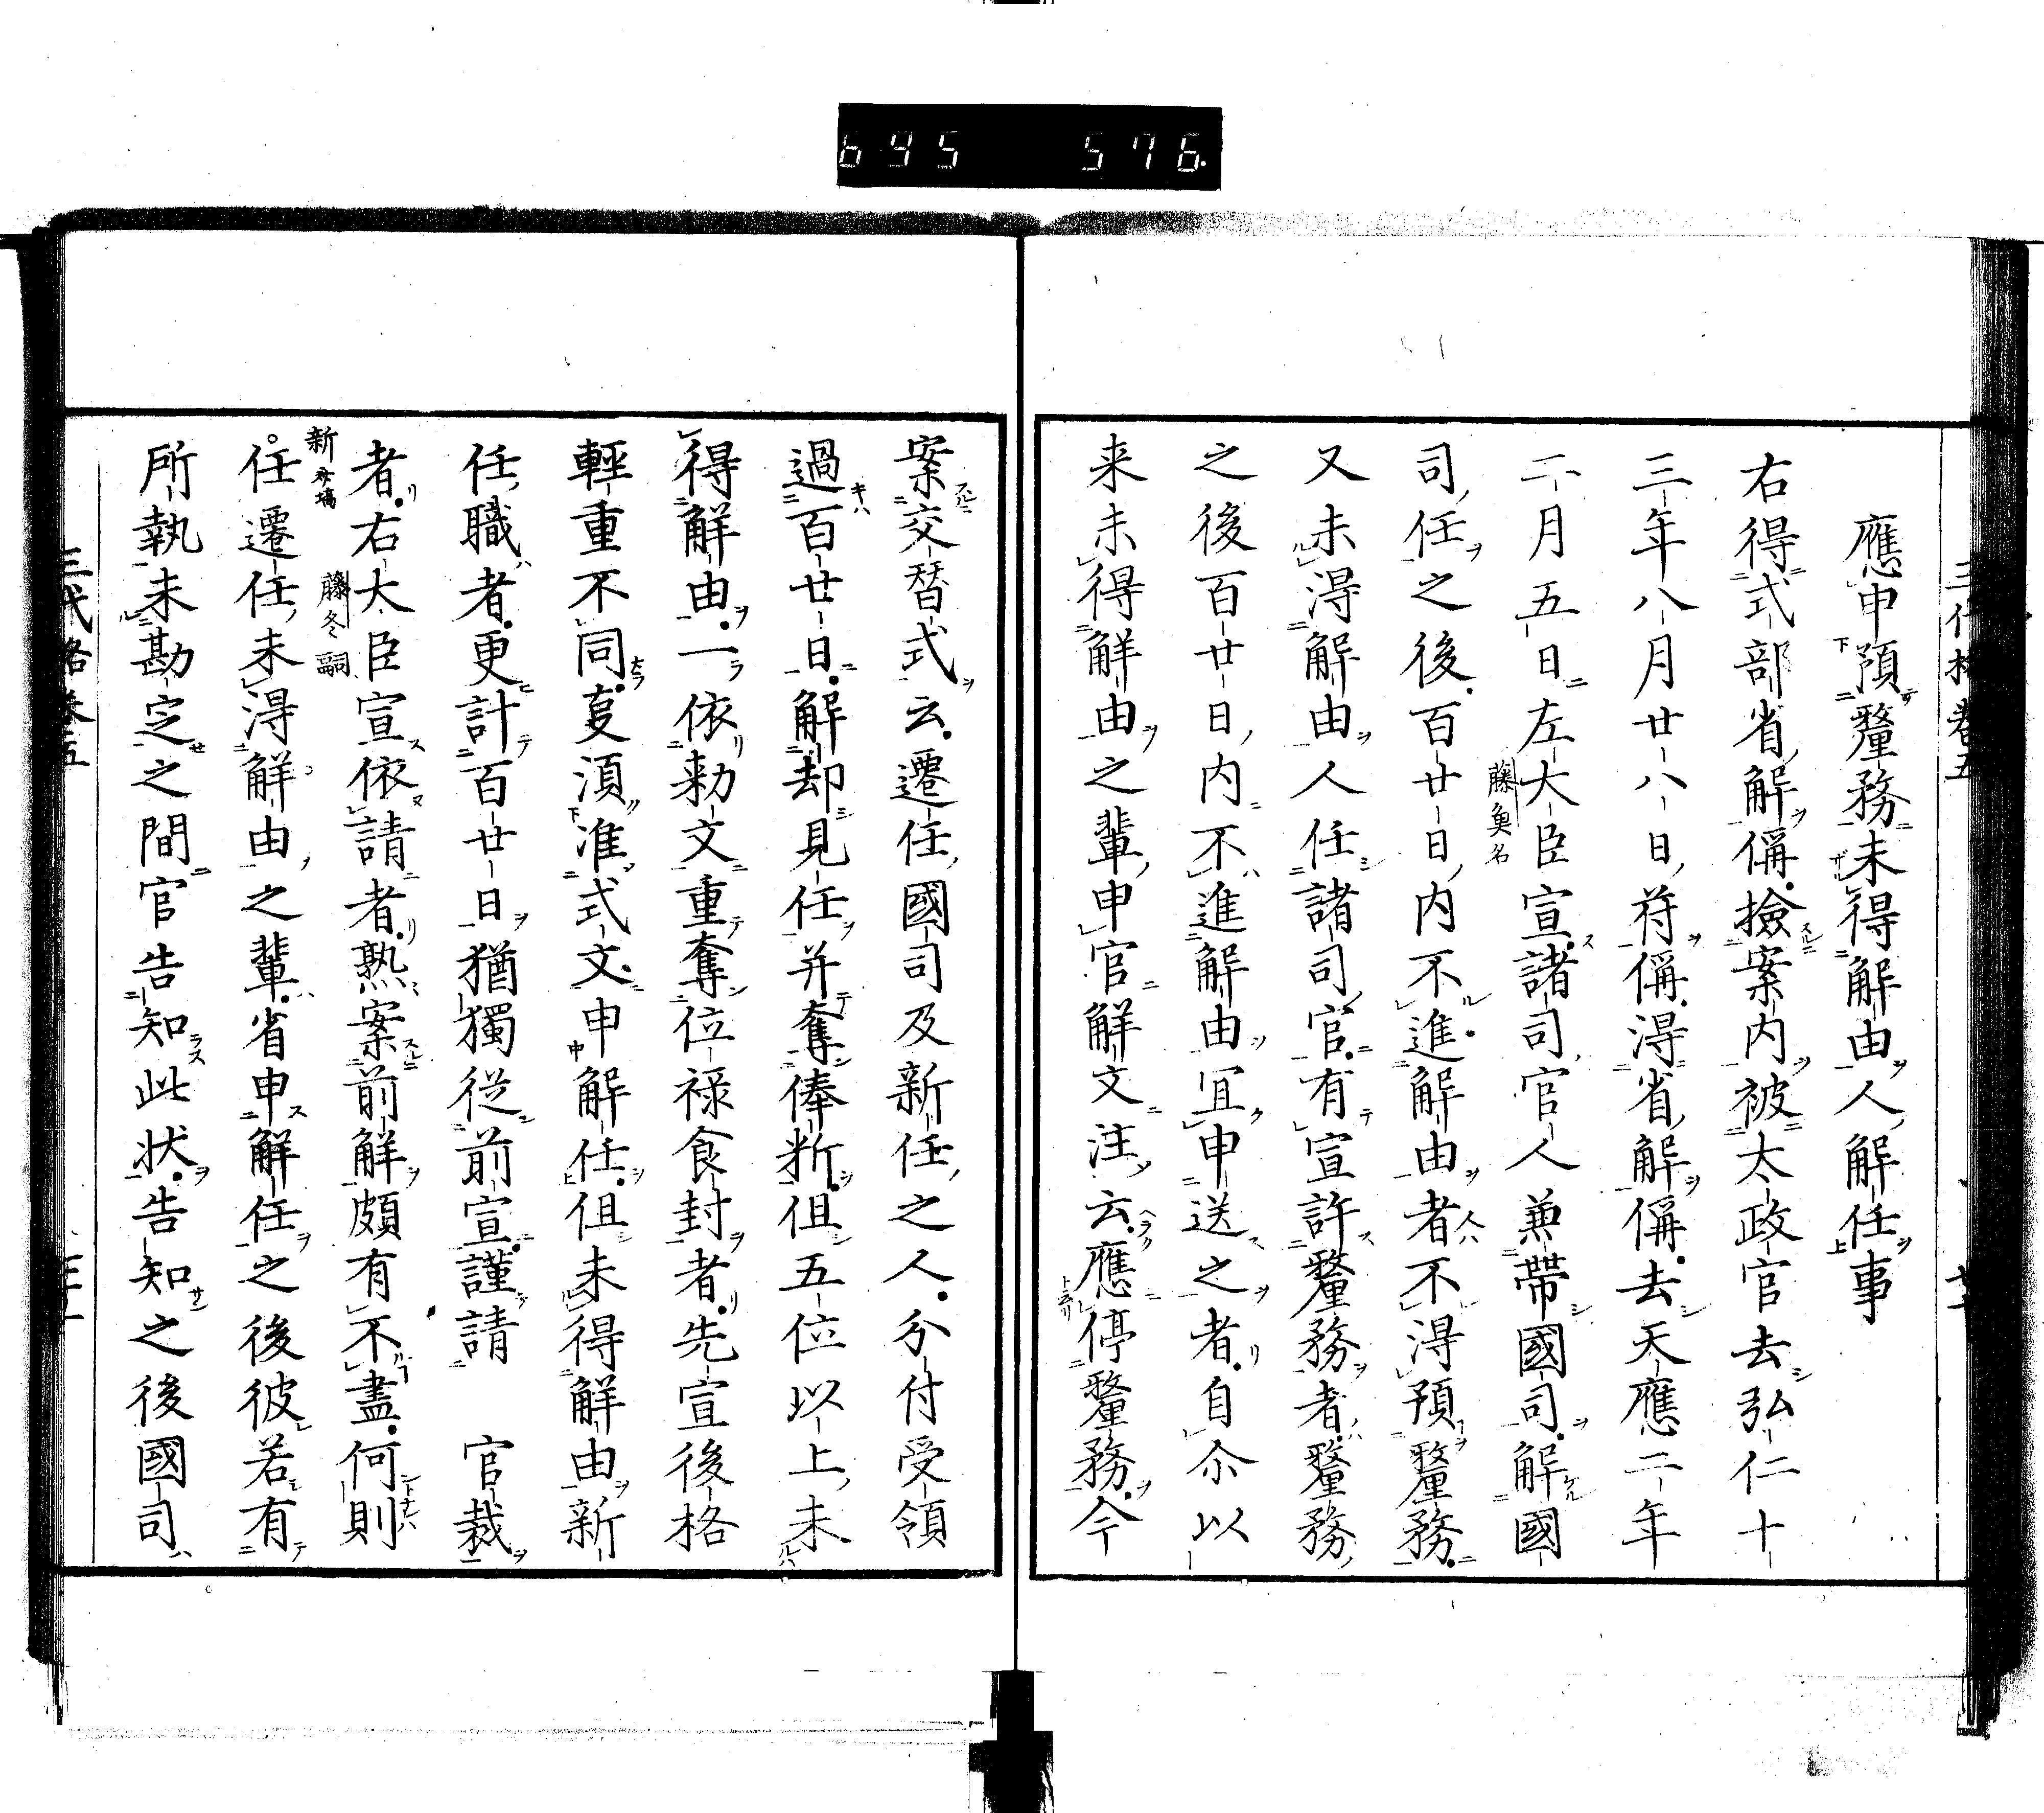 應申預釐務未得解由人解任事
右得式部省解偁撿案内被太政官去弘仁十
三年八月廿八日符偁得省解偁去天應二年
二月五日左大臣宣諸司官人兼帶國司解國
藤魚名
司任之後百廿日内不進解由者不得預釐務
又未得解由人任諸司官有宣許釐務者釐務
之後百廿日内不進解由宜申送之者自尒以
来未得解由之輩申官解文注云應停釐務今
案交替式云遷任國司及新任之人分付受領
過百廿日解却見任并奪俸斯但五位以上未
得解由一依勅文重奪位禄食封者先宣後格
輕重不同夏須准式文申解任但未得解由新
任職者更計百廿日猶獨從前宣謹請 官裁
者右大臣宣依請者熟案前解頗有不盡何則
藤冬嗣
新
任遷任未得解由之輩省申解任之後彼若有
所執未勘定之間官告知此状告知之後國司
三代格卷五